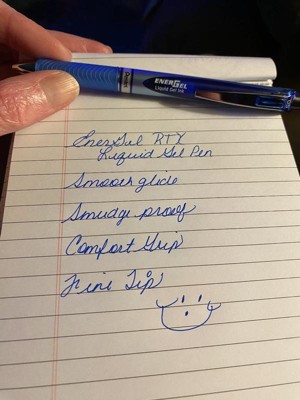 Pentel
ENERGEL
Liquid Gel Ink
EnerGel RTX
Liquid Gel Pen
Smooth glide
Smudge proof
Comfort Grip
Fine Tip